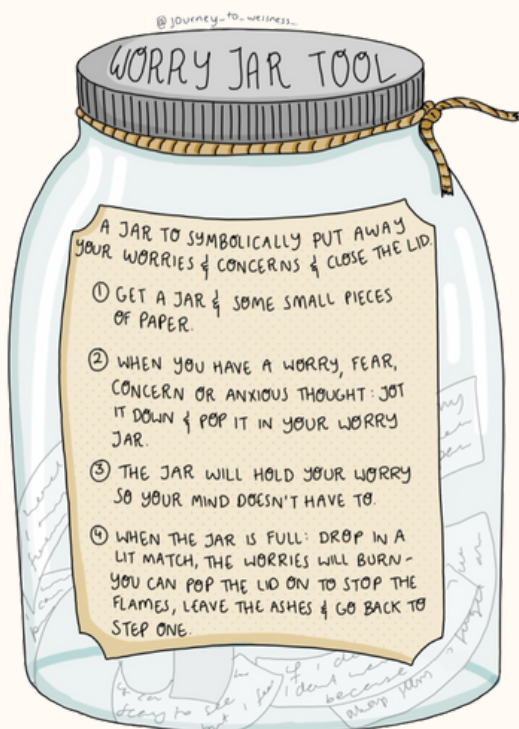 @journey_to_wellness_
WORRY JAR TOOL
A JAR TO SYMBOLICALLY PUT AWAY
YOUR WORRIES & CONCERNS & CLOSE THE LID.
① GET A JAR & SOME SMALL PIECES
OF PAPER.
② WHEN YOU HAVE A WORRY, FEAR,
CONCERN OR ANXIOUS THOUGHT: JOT
IT DOWN & POP IT IN YOUR WORRY
JAR.
③ THE JAR WILL HOLD YOUR WORRY
SO YOUR MIND DOESN'T HAVE TO.
④ WHEN THE JAR IS FULL: DROP IN A
LIT MATCH, THE WORRIES WILL BURN-
YOU CAN POP THE LID ON TO STOP THE
FLAMES, LEAVE THE ASHES & GO BACK TO
STEP ONE.
because